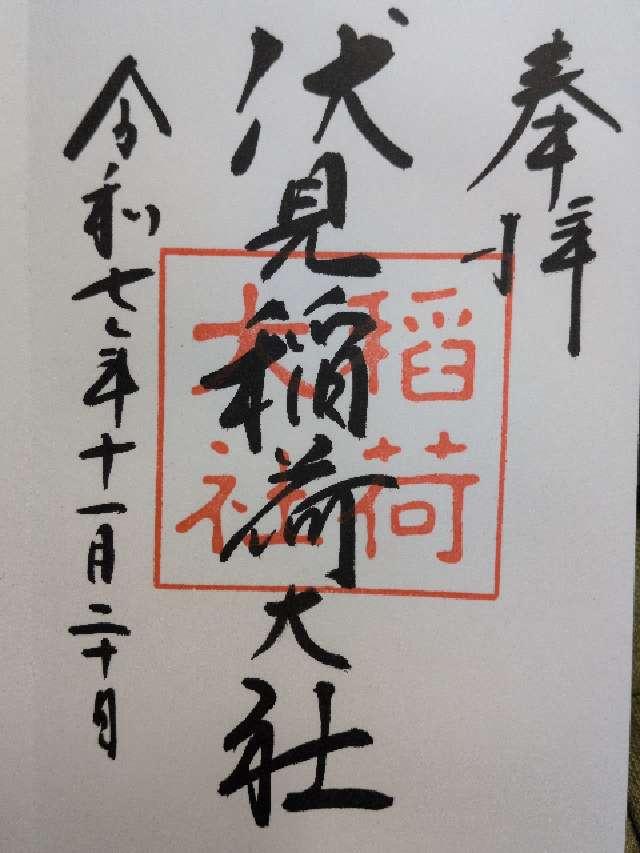 奉拝
伏見稲荷大社
稲荷
大社
令和七年十一月二十日